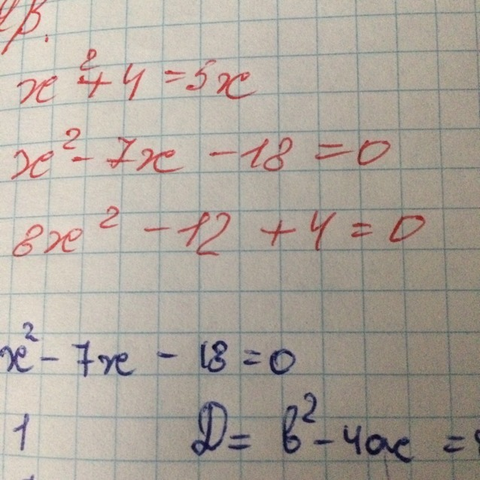 x² + 4 = 5x
x² - 7x - 18 = 0
8x² - 12 + 4 = 0
x² - 7x - 18 = 0
1
D = b² - 4ac =